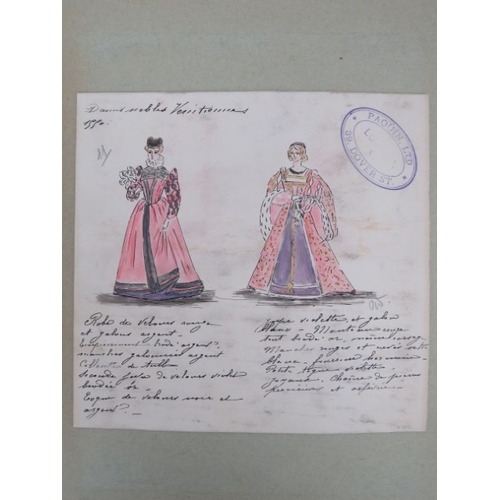 Dames nobles Venitiennes
1570.
PAQUIN LTD
39, DOVER ST.
Robe de velours rouge
et galons argent.
brodé argent.
manches galonnées argent
Collerette de tulle
seconde jupe de velours violet
brodée
Toque de velours noir et
argent.
Jupe violette et galon
Manteau rouge
tout brodé or,
Manches rouges et
fourrure hermine
Petite toque violette
Joyaux. Chaîne de pierres
précieuses et